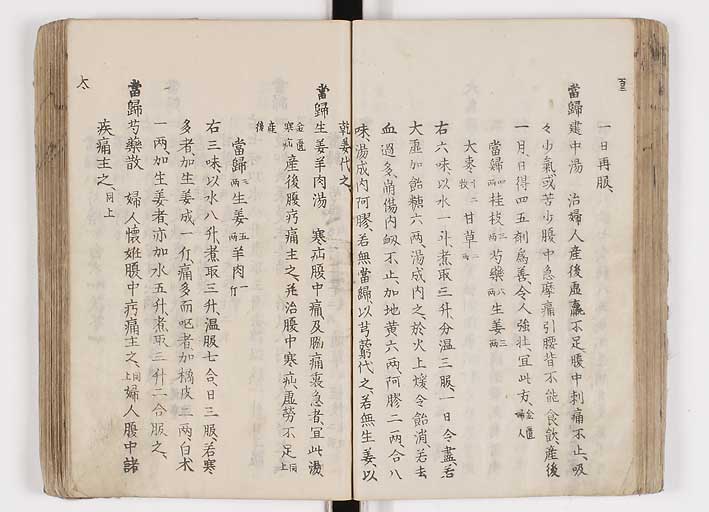 一日再服、
當歸建中湯　治婦人産後虚羸不足腹中刺痛不止、吸
々少氣或苦少腹中急摩痛引腰背不能食飲、産後
一月、日得四五劑為善、令人強壮、宜此方、金匱婦人
當歸四兩桂枝三兩芍藥六兩生姜三兩
大枣十二枚甘草二兩
右六味、以水一斗、煮取三升、分温三服、一日令盡、若
大虚加飴糖六兩、湯成内之、於火上煖令飴消、若去
血過多、崩傷内衂不止、加地黄六兩、阿膠二兩合八
味、湯成内阿膠、若無當歸、以芎藭代之、若無生姜、以
乾姜代之、
當歸生姜羊肉湯　寒疝腹中痛、及脇痛裏急者、宜此湯、
金匱寒疝産後腹㽲痛主之、并治腹中寒疝、虚勞不足、同上
産後
當歸三兩生姜五兩羊肉一斤
右三味、以水八升、煮取三升、温服七合、日三服、若寒
多者、加生姜成一斤、痛多而呕者、加橘皮二兩、白术
一兩、加生姜者、亦加水五升、煮取三升二合服之、
當歸芍藥散　婦人懐姙腹中㽲痛主之、同上婦人腹中諸
疾痛主之、同上